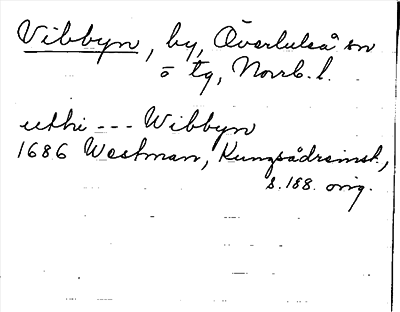 Vibbyn, by, Överluleå sn
o tg, Norrb. l.
uthi --- Wibbyn
1686 Westman, Kungsådreinst.,
s. 188. orig.